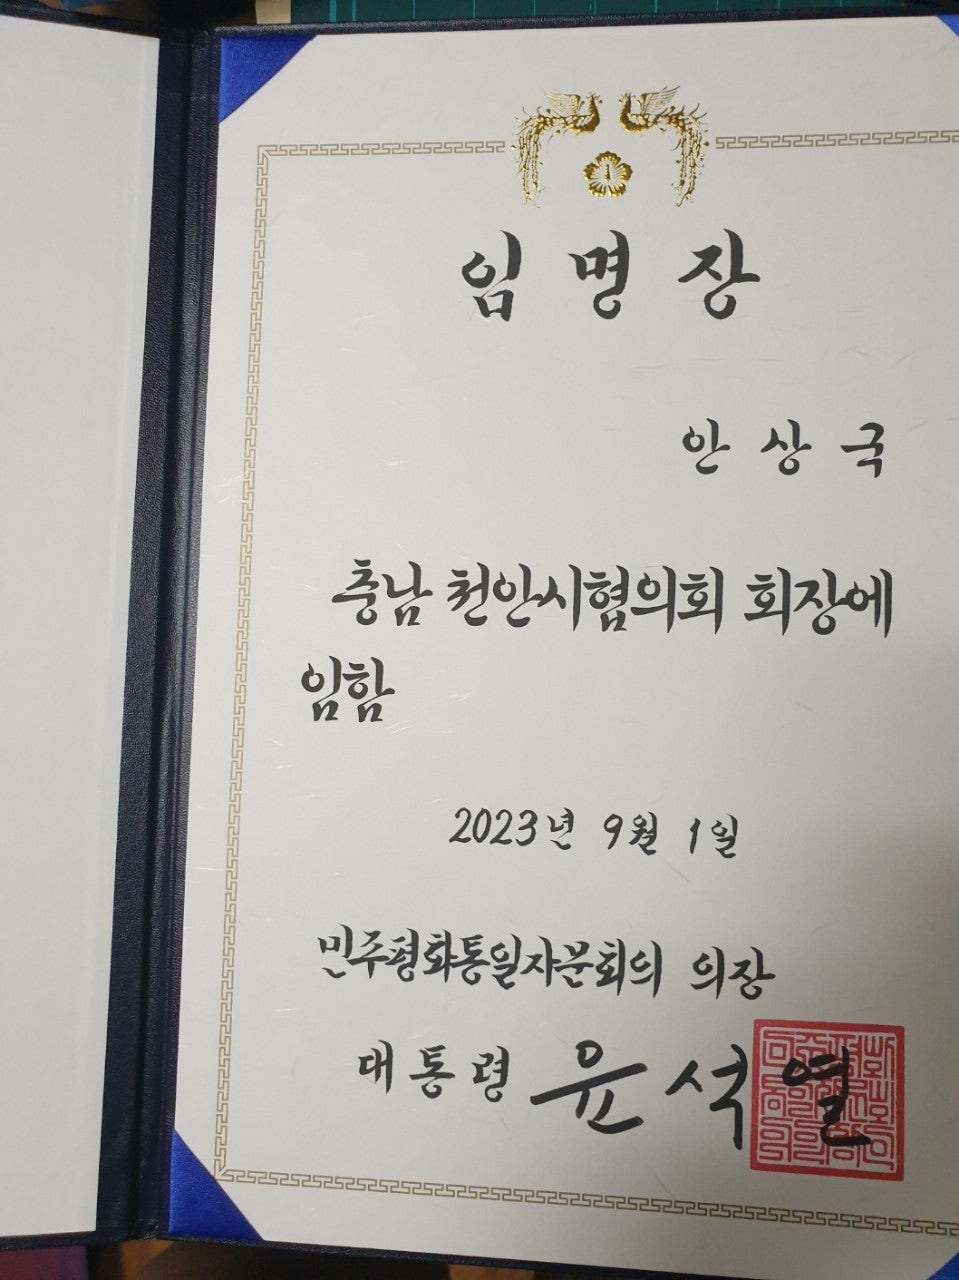 임명장
안상국
충남 천안시협의회 회장에
임함
2023년 9월 1일
민주평화통일자문회의 의장
대통령 윤석열